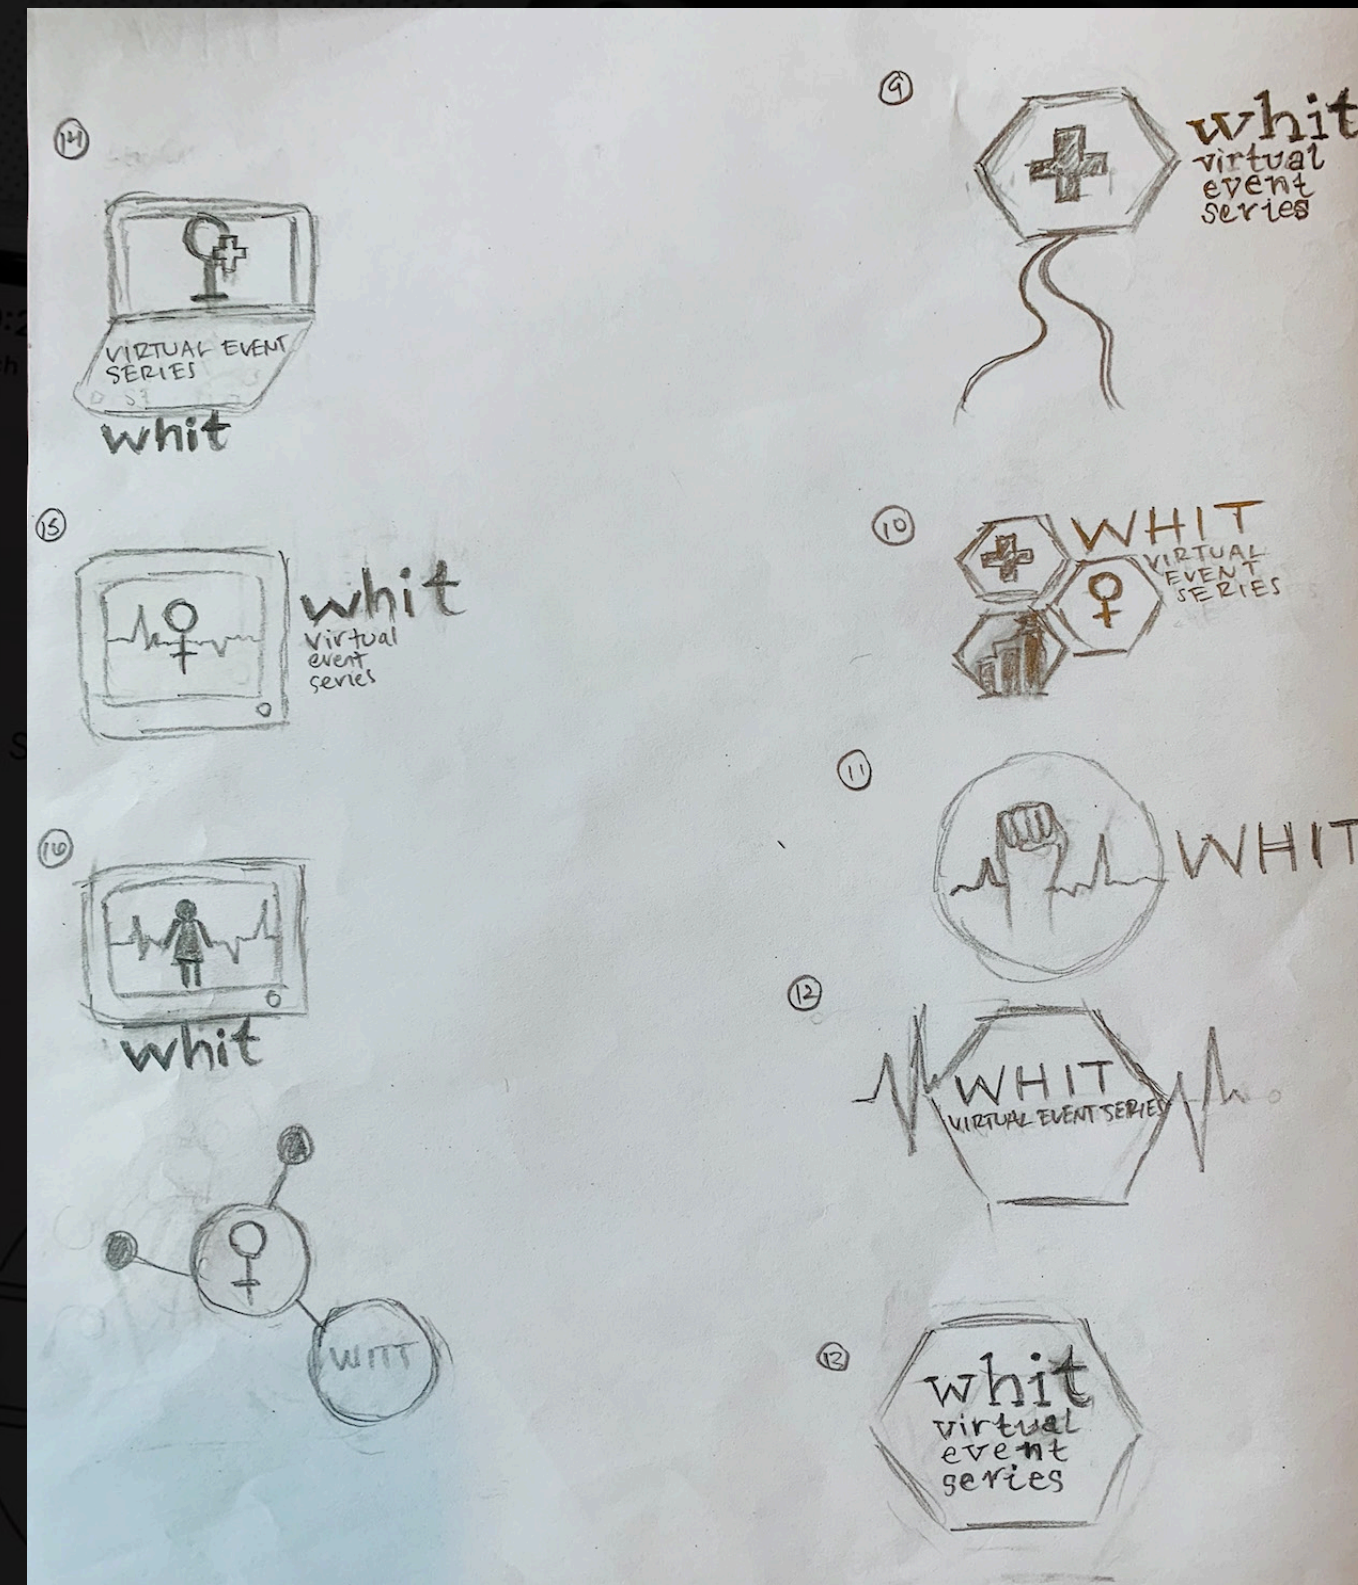 14
VIRTUAL EVENT
SERIES
whit
15
whit
virtual
event
series
16
whit
WITT
9
whit
virtual
event
series
10
WHIT
VIRTUAL
EVENT
SERIES
11
WHIT
12
WHIT
VIRTUAL EVENT SERIES
13
whit
virtual
event
series